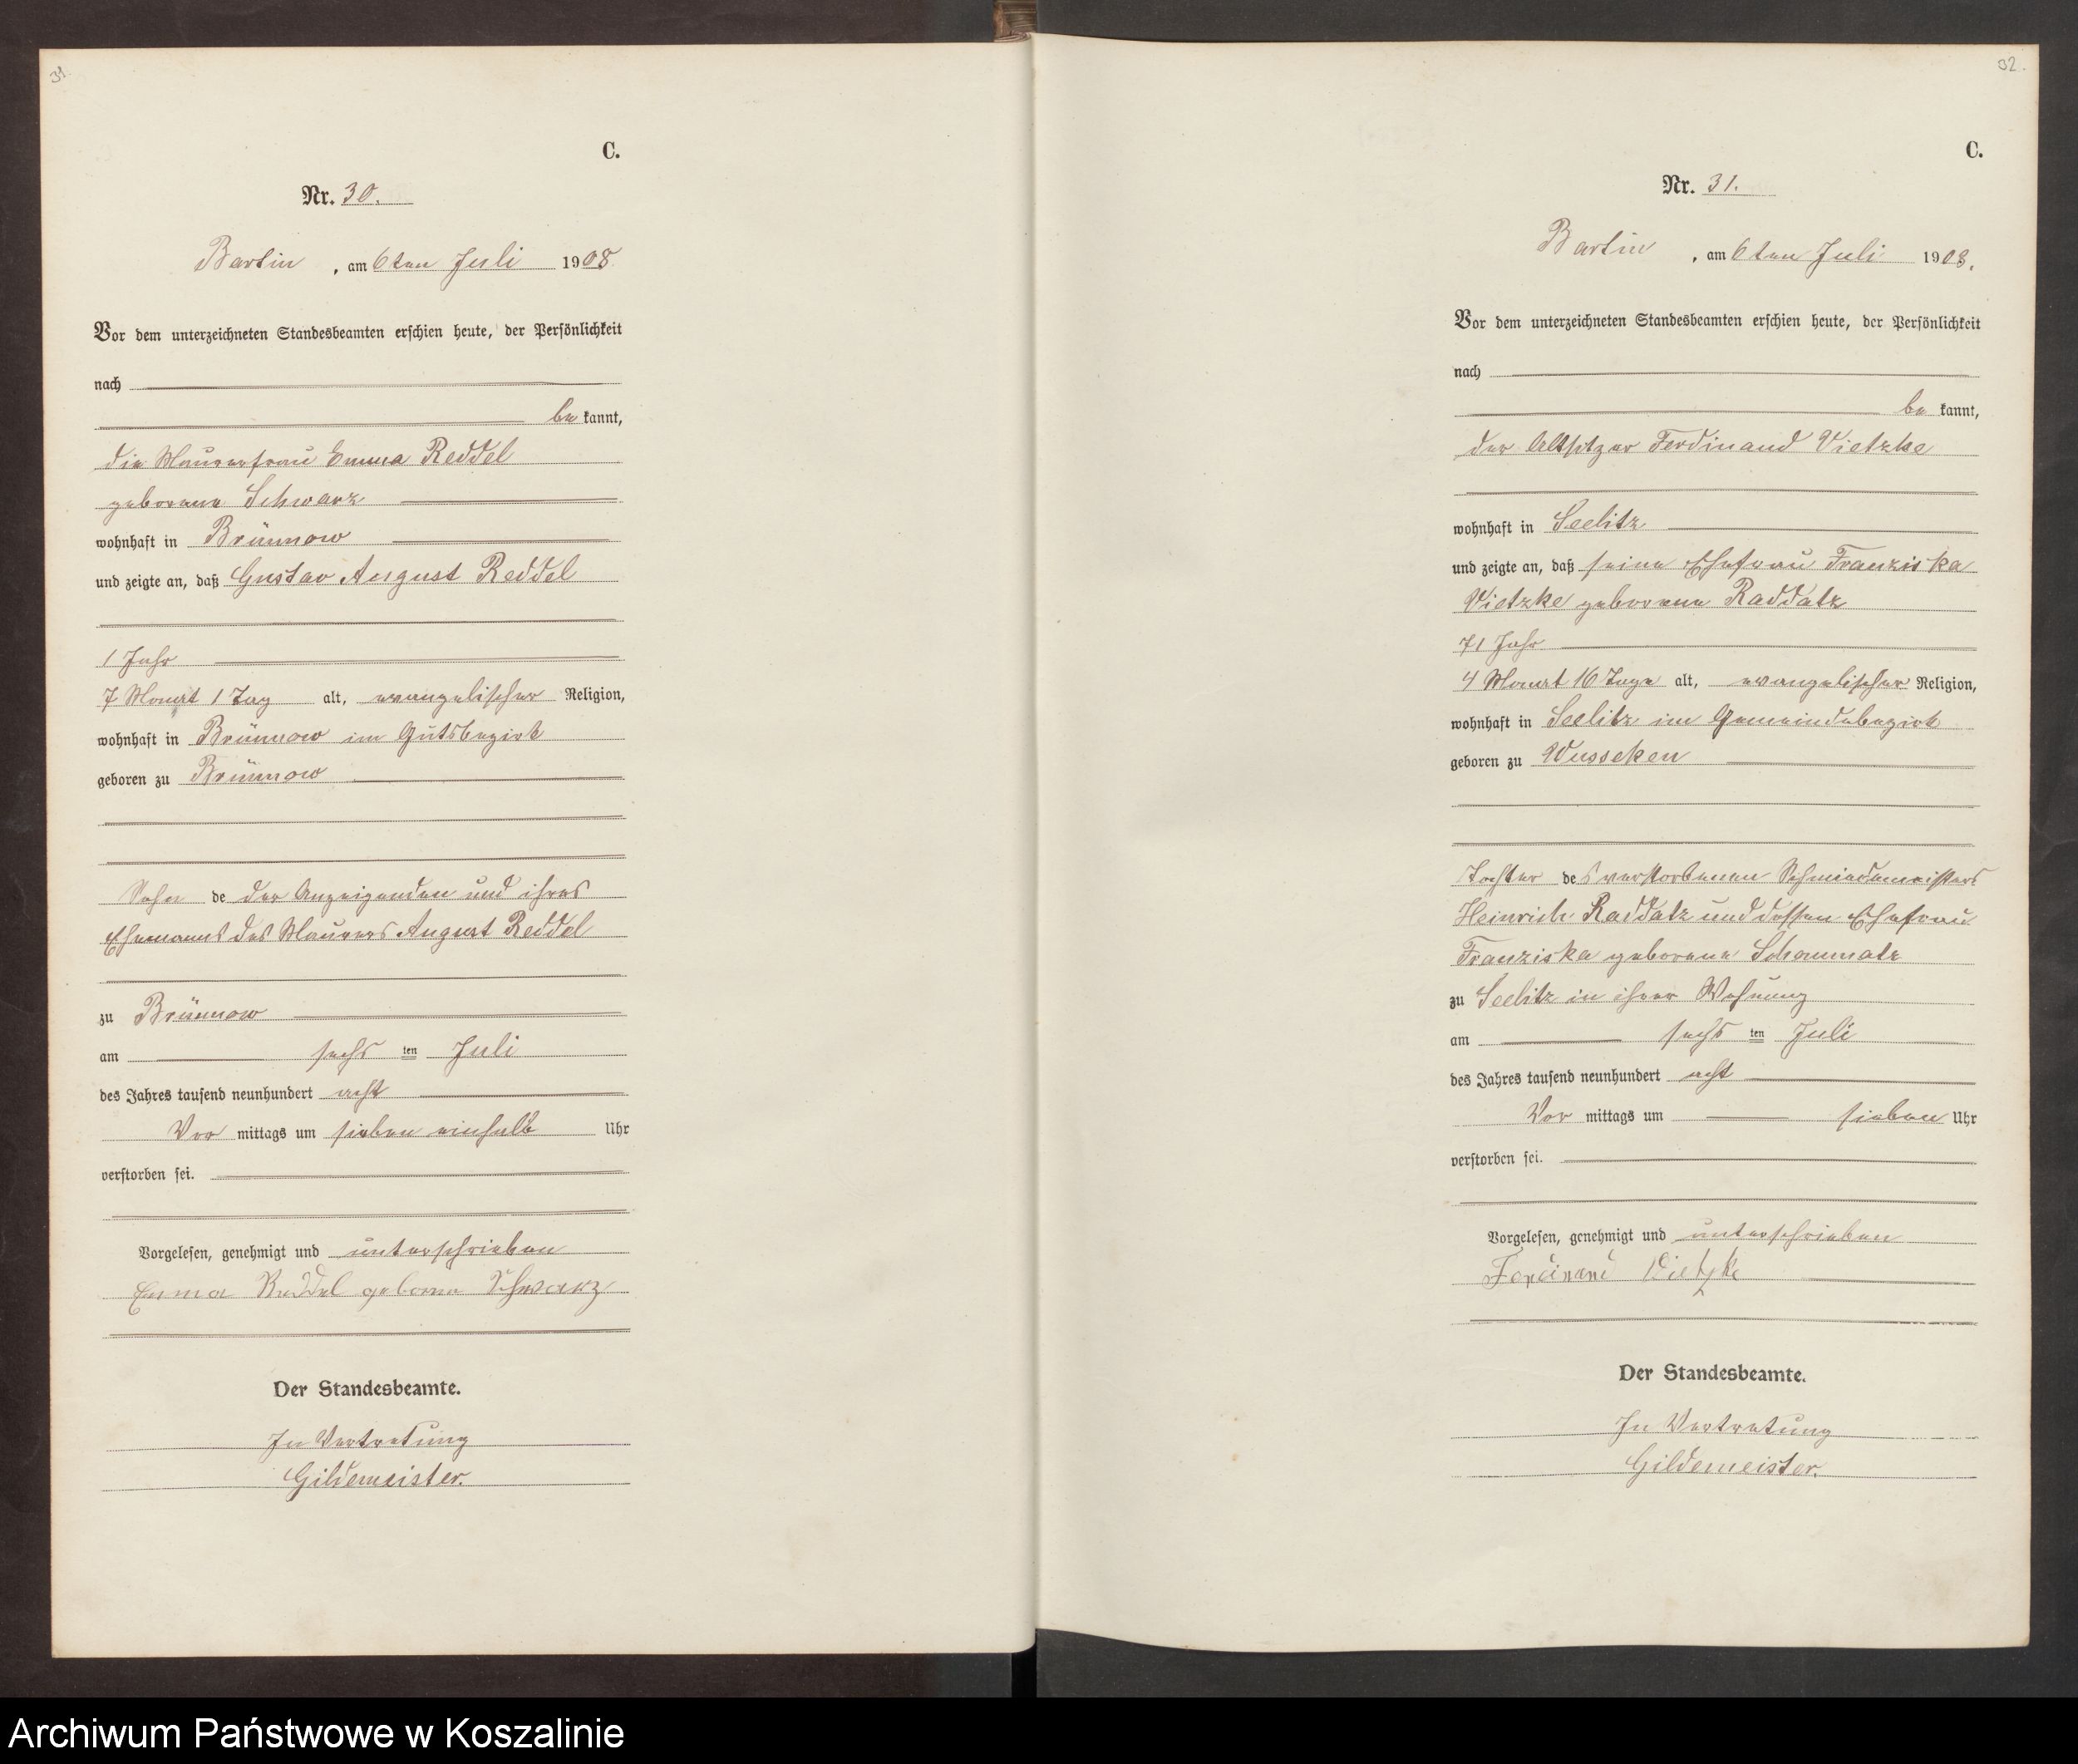 31.
C.
Nr. 30.
Bartin, am 6ten Juli 1908
Vor dem unterzeichneten Standesbeamten erschien heute, der Persönlichkeit
nach
be kannt,
die Maurerfrau Emma Reddel
geborene Schwarz
wohnhaft in Brünnow
und zeigte an, daß Gustav August Reddel
1 Jahr
7 Monat 1 Tag alt, evangelischer Religion,
wohnhaft in Brünnow im Gutsbezirk
geboren zu Brünnow
Sohn de der Anzeigenden und ihres
Ehemanns des Maurers August Reddel
zu Brünnow
am sechs ten Juli
des Jahres tausend neunhundert acht
Vor mittags um sieben einhalb Uhr
verstorben sei.
Vorgelesen, genehmigt und unterschrieben
Emma Reddel geborne Schwarz
Der Standesbeamte.
In Vertretung
Gildemeister.
32.
C.
Nr. 31.
Bartin, am 6ten Juli 1908.
Vor dem unterzeichneten Standesbeamten erschien heute, der Persönlichkeit
nach
be kannt,
der Altsitzer Ferdinand Vietzke
wohnhaft in Seelitz
und zeigte an, daß seine Ehefrau Franziska
Vietzke geborene Raddatz
71 Jahr
4 Monat 16 Tage alt, evangelischer Religion,
wohnhaft in Seelitz im Gemeindebezirk
geboren zu Wusseken
Tochter des verstorbenen Schmiedemeisters
Heinrich Raddatz und dessen Ehefrau
Franziska geborene
zu Seelitz in ihrer Wohnung
am sechs ten Juli
des Jahres tausend neunhundert acht
Vor mittags um sieben Uhr
verstorben sei.
Vorgelesen, genehmigt und unterschrieben
Ferdinand Vietzke
Der Standesbeamte.
In Vertretung
Gildemeister.
Archiwum Państwowe w Koszalinie